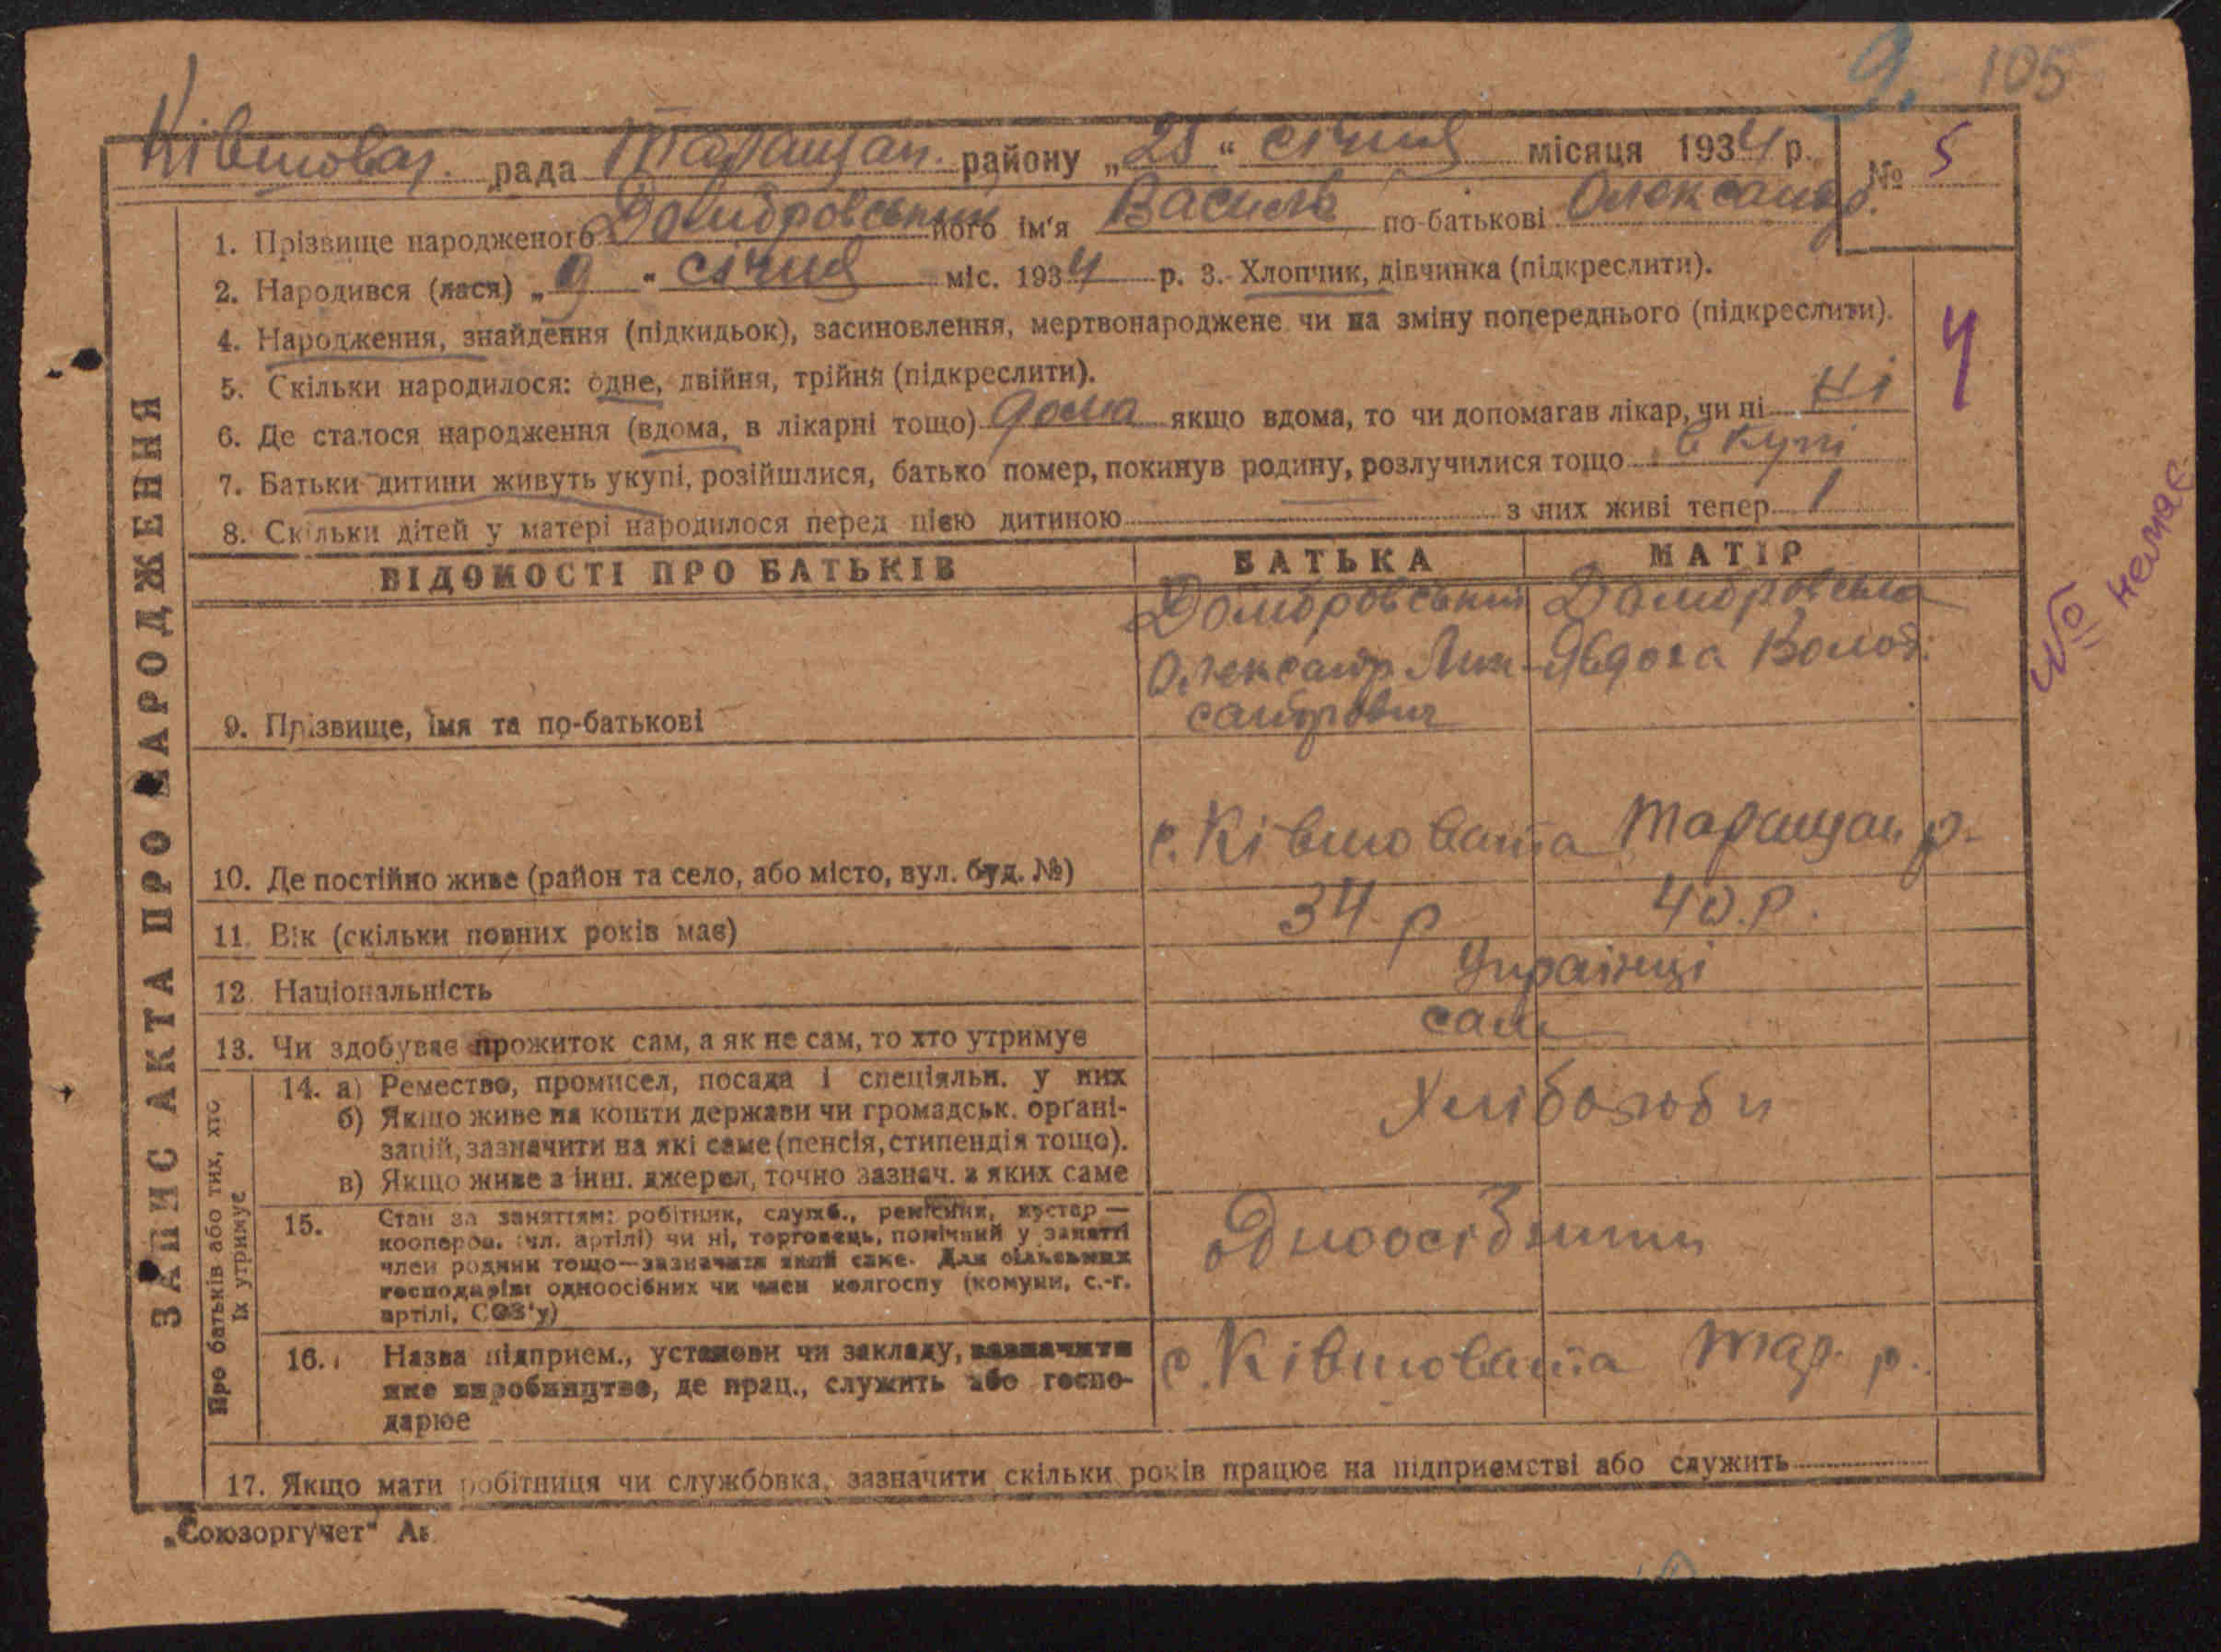 9. 105
Ківшоват. рада Таращан. району „25“ січня місяця 1934 р. № 5
1. Прізвище народженого Домбровський його ім'я Василь по-батькові Олександр.
2. Народився (лася) „9“ січня міс. 1934 р. 3. Хлопчик, дівчинка (підкреслити).
4. Народження, знайдення (підкидьок), засиновлення, мертвонароджене чи на зміну попереднього (підкреслити).
4
5. Скільки народилося: одне, двійня, трійня (підкреслити).
6. Де сталося народження (вдома, в лікарні тощо) дома якщо вдома, то чи допомагав лікар, чи ні ні
7. Батьки дитини живуть укупі, розійшлися, батько помер, покинув родину, розлучилися тощо в купі
8. Скільки дітей у матері народилося перед цією дитиною — з них живі тепер 1
ВІДОМОСТІ ПРО БАТЬКІВ БАТЬКА МАТІР
Домбровський Домбровська
Олександр Явдоха Волод.
сандрович
9. Прізвище, імя та по-батькові
немає
с. Ківшовата Таращан р.
10. Де постійно живе (район та село, або місто, вул. буд. №)
11. Вік (скільки повних років має) 34 р 40.р.
12. Національність Українці
13. Чи здобуває прожиток сам, а як не сам, то хто утримує сами
14. а) Ремество, промисел, посада і спеціяльн. у них
б) Якщо живе на кошти держави чи громадськ. орґані-
зацій, зазначити на які саме (пенсія, стипендія тощо).
Хлібороби
в) Якщо живе з інш. джерел, точно зазнач. з яких саме
15. Стан за заняттям: робітник, служб., ремісник, кустар —
кооперов. (чл. артілі) чи ні, торговець, помічний у занятті
член родини тощо—зазначити який саме. Для сільських
господарів: одноосібних чи член колгоспу (комуни, с.-г.
артілі, СОЗ'у)
одноосібники
16. Назва підприєм., установи чи закладу, зазначити
яке виробництво, де прац., служить або госпо-
дарює
с. Ківшовата Тар. р.
17. Якщо мати робітниця чи службовка, зазначити скільки років працює на підприємстві або служить
ЗАПИС АКТА ПРО НАРОДЖЕННЯ
Про батьків або тих, хто
їх утримує
„Союзоргучет“